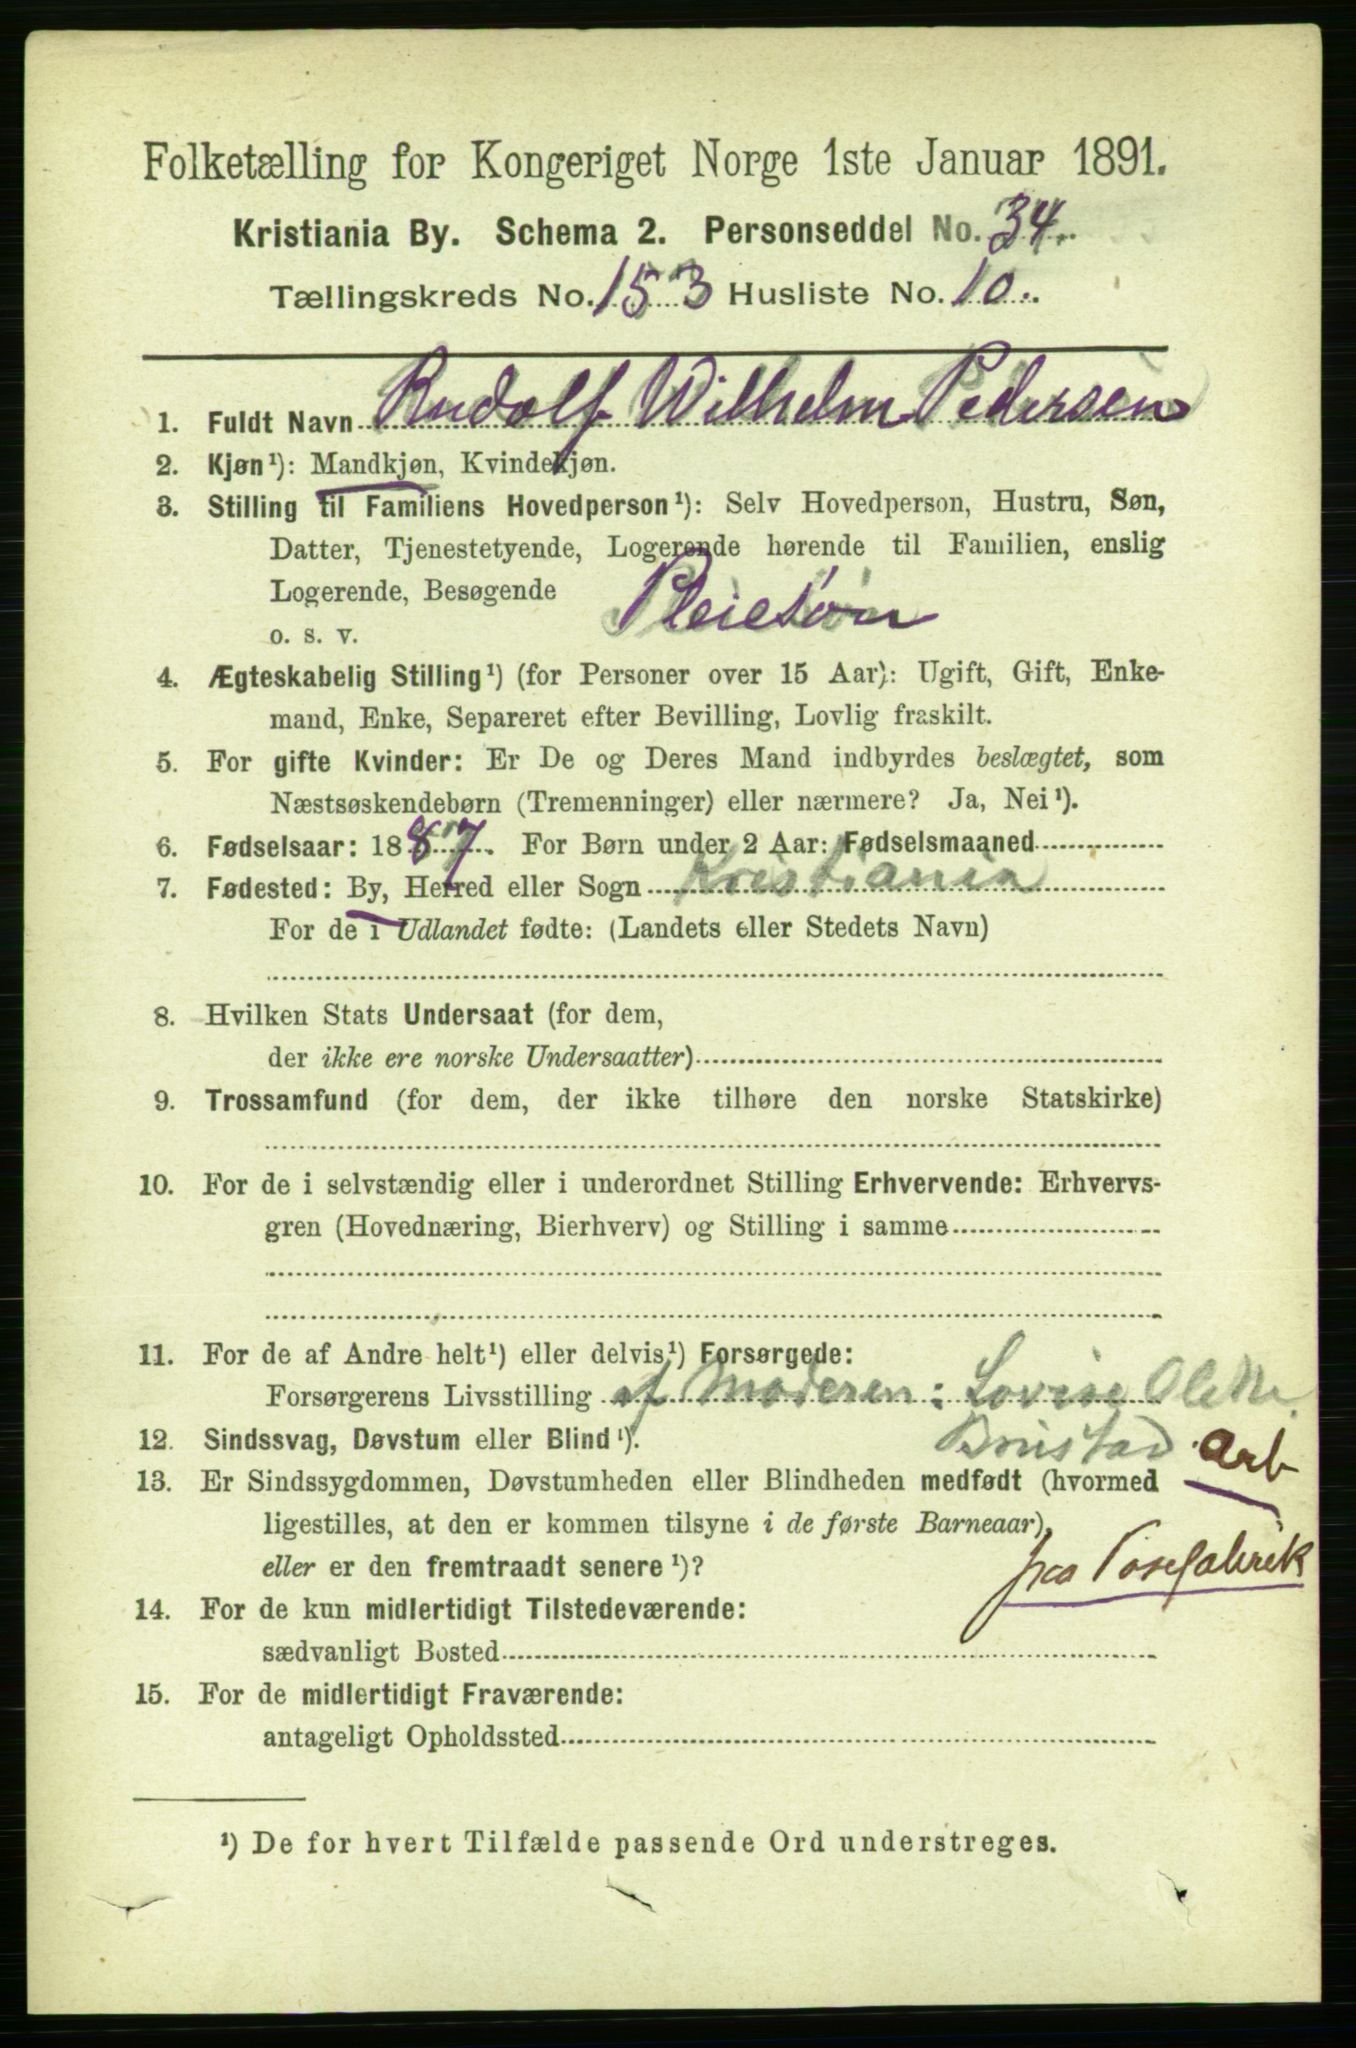 Folketælling for Kongeriget Norge 1ste Januar 1891.
Kristiania By. Schema 2. Personseddel No. 34.
Tællingskreds No. 153 Husliste No. 10.
1. Fuldt Navn Rudolf Wilhelm Pedersen
2. Kjøn¹): Mandkjøn, Kvindekjøn.
3. Stilling til Familiens Hovedperson¹): Selv Hovedperson, Hustru, Søn,
Datter, Tjenestetyende, Logerende hørende til Familien, enslig
Logerende, Besøgende Pleiesøn
o. s. v.
4. Ægteskabelig Stilling¹) (for Personer over 15 Aar): Ugift, Gift, Enke-
mand, Enke, Separeret efter Bevilling, Lovlig fraskilt.
5. For gifte Kvinder: Er De og Deres Mand indbyrdes beslægtet, som
Næstsøskendebørn (Tremenninger) eller nærmere? Ja, Nei¹).
6. Fødselsaar: 1887. For Børn under 2 Aar: Fødselsmaaned
7. Fødested: By, Herred eller Sogn Kristiania
For de i Udlandet fødte: (Landets eller Stedets Navn)
8. Hvilken Stats Undersaat (for dem,
der ikke ere norske Undersaatter)
9. Trossamfund (for dem, der ikke tilhøre den norske Statskirke)
10. For de i selvstændig eller i underordnet Stilling Erhvervende: Erhvervs-
gren (Hovednæring, Bierhverv) og Stilling i samme
11. For de af Andre helt¹) eller delvis¹) Forsørgede:
Forsørgerens Livsstilling af Moderen: Lovise Olette
12. Sindssvag, Døvstum eller Blind¹). Brustad arb
13. Er Sindssygdommen, Døvstumheden eller Blindheden medfødt (hvormed
ligestilles, at den er kommen tilsyne i de første Barneaar),
eller er den fremtraadt senere¹)? paa Posefabrik
14. For de kun midlertidigt Tilstedeværende:
sædvanligt Bosted
15. For de midlertidigt Fraværende:
antageligt Opholdssted
¹) De for hvert Tilfælde passende Ord understreges.